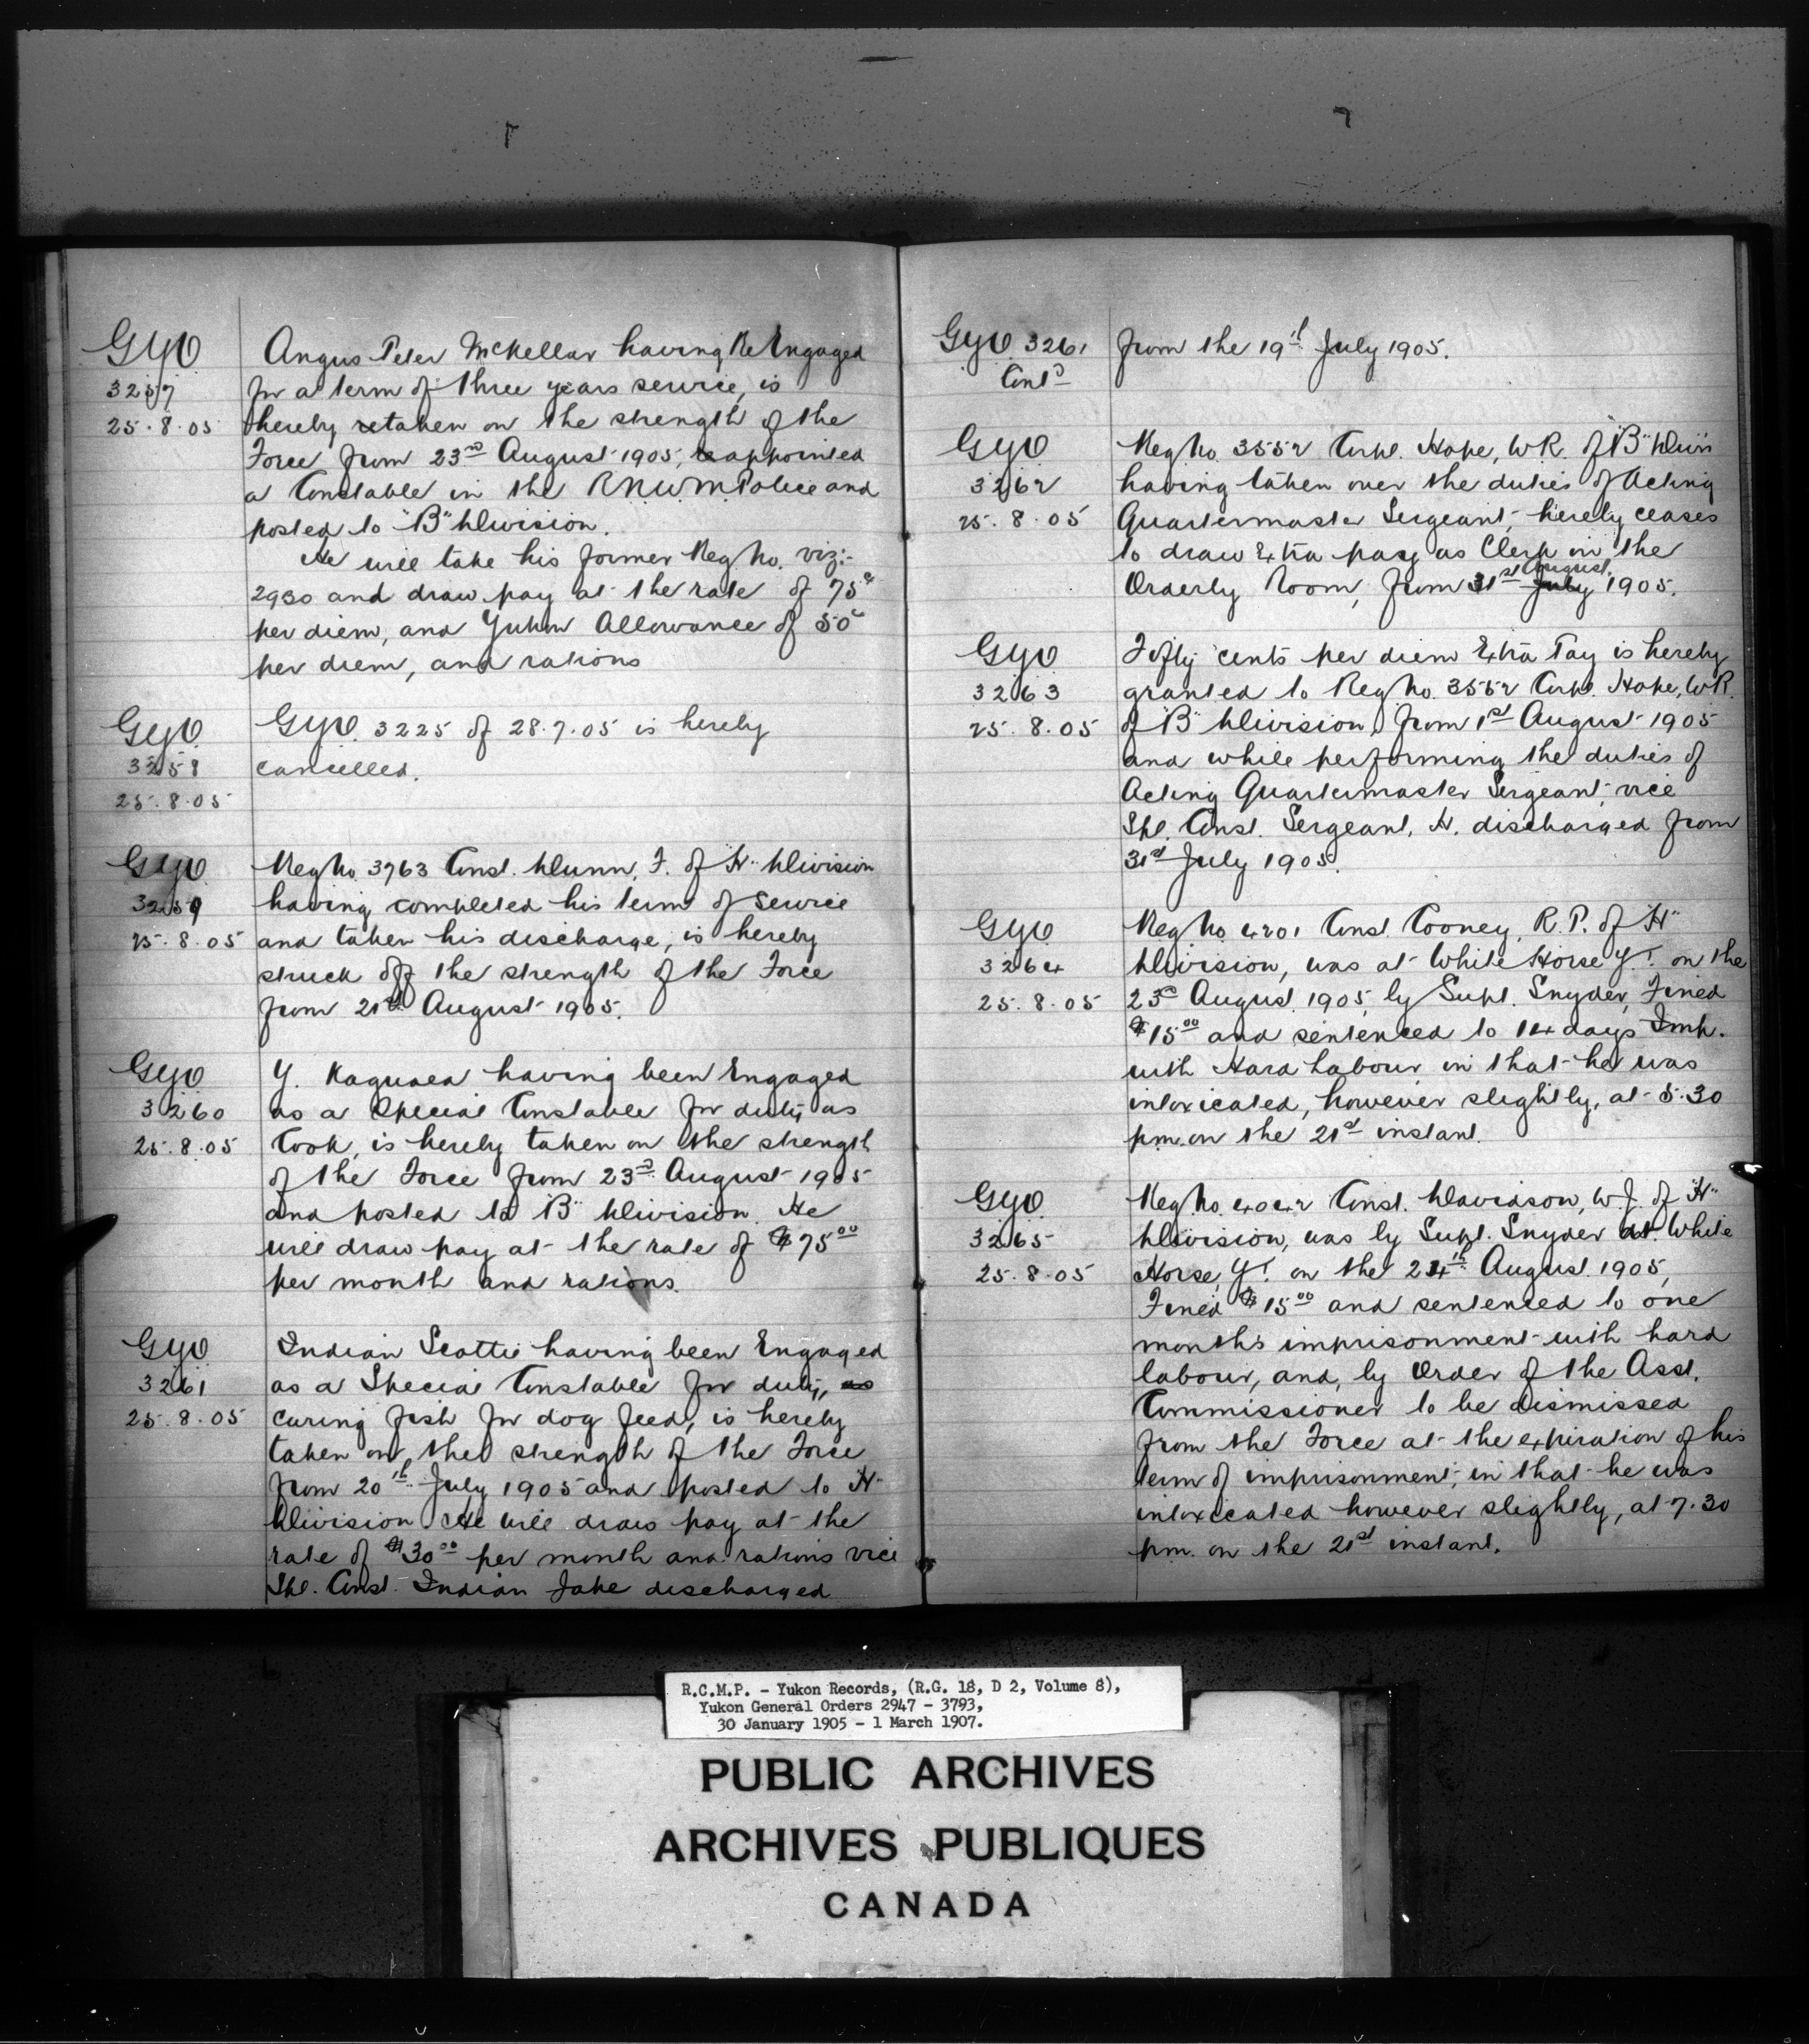 GYO
3257
25.8.05
Angus Peter McKellar having Re Engaged
for a term of three years service, is
hereby retaken on the strength of the
Force from 23rd August 1905, reappointed
a Constable in the R.N.W.M. Police and
posted to "B" Division.
He will take his former Reg No. viz:-
2930 and draw pay at the rate of 75c
per diem, and Yukon Allowance of 50c
per diem, and rations
GYO
3258
25.8.05
GYO. 3225 of 28.7.05 is hereby
cancelled.
GYO
3259
25.8.05
Reg No. 3763 Const. Dunn, F. of "H" Division
having completed his term of service
and taken his discharge, is hereby
struck off the strength of the Force
from 21st August 1905.
GYO
3260
25.8.05
Y. Kaguaea having been Engaged
as a Special Constable for duty as
Cook, is hereby taken on the strength
of the Force from 23rd August 1905
and posted to "B" Division. He
will draw pay at the rate of $75.00
per month and rations.
GYO
3261
25.8.05
Indian Scottie having been Engaged
as a Special Constable for duty, as
curing fish for dog feed, is hereby
taken on the strength of the Force
from 20th July 1905 and posted to "H"
Division He will draw pay at the
rate of $30.00 per month and rations vice
Spl. Const. Indian Jake discharged
GYO 3261
Contd
from the 19th July 1905.
GYO
3262
25.8.05
Reg No. 3552 Corpl. Hope, W.R. of "B" Divin
having taken over the duties of Acting
Quartermaster Sergeant, hereby ceases
to draw Extra pay as Clerk in the
Orderly Room, from 31st July August 1905.
GYO
3263
25.8.05
Fifty cents per diem Extra Pay is hereby
granted to Reg No. 3552 Corpl. Hope, W.R.
of "B" Division, from 1st August 1905
and while performing the duties of
Acting Quartermaster Sergeant, vice
Spl. Const. Sergeant, H. discharged from
31st July 1905.
GYO
3264
25.8.05
Reg No 4201 Const. Cooney, R.P. of "H"
Division, was at White Horse Y.T. on the
23rd August 1905, by Supt. Snyder, Fined
$15.00 and sentenced to 14 days Imp.
with Hard Labour, in that he was
intoxicated, however slightly, at 5.30
pm. on the 21st instant.
GYO
3265
25.8.05
Reg No. 4042 Const. Davidson, W.J. of "H"
Division, was by Supt. Snyder at White
Horse, Y.T. on the 24th August 1905,
Fined $15.00 and sentenced to one
month's imprisonment with hard
labour, and, by Order of the Asst.
Commissioner to be dismissed
from the Force at the expiration of his
term of imprisonment, in that he was
intoxicated however slightly, at 7.30
pm. on the 21st instant.
R.C.M.P. - Yukon Records, (R.G. 18, D 2, Volume 8),
Yukon General Orders 2947 - 3793,
30 January 1905 - 1 March 1907.
PUBLIC ARCHIVES
ARCHIVES PUBLIQUES
CANADA